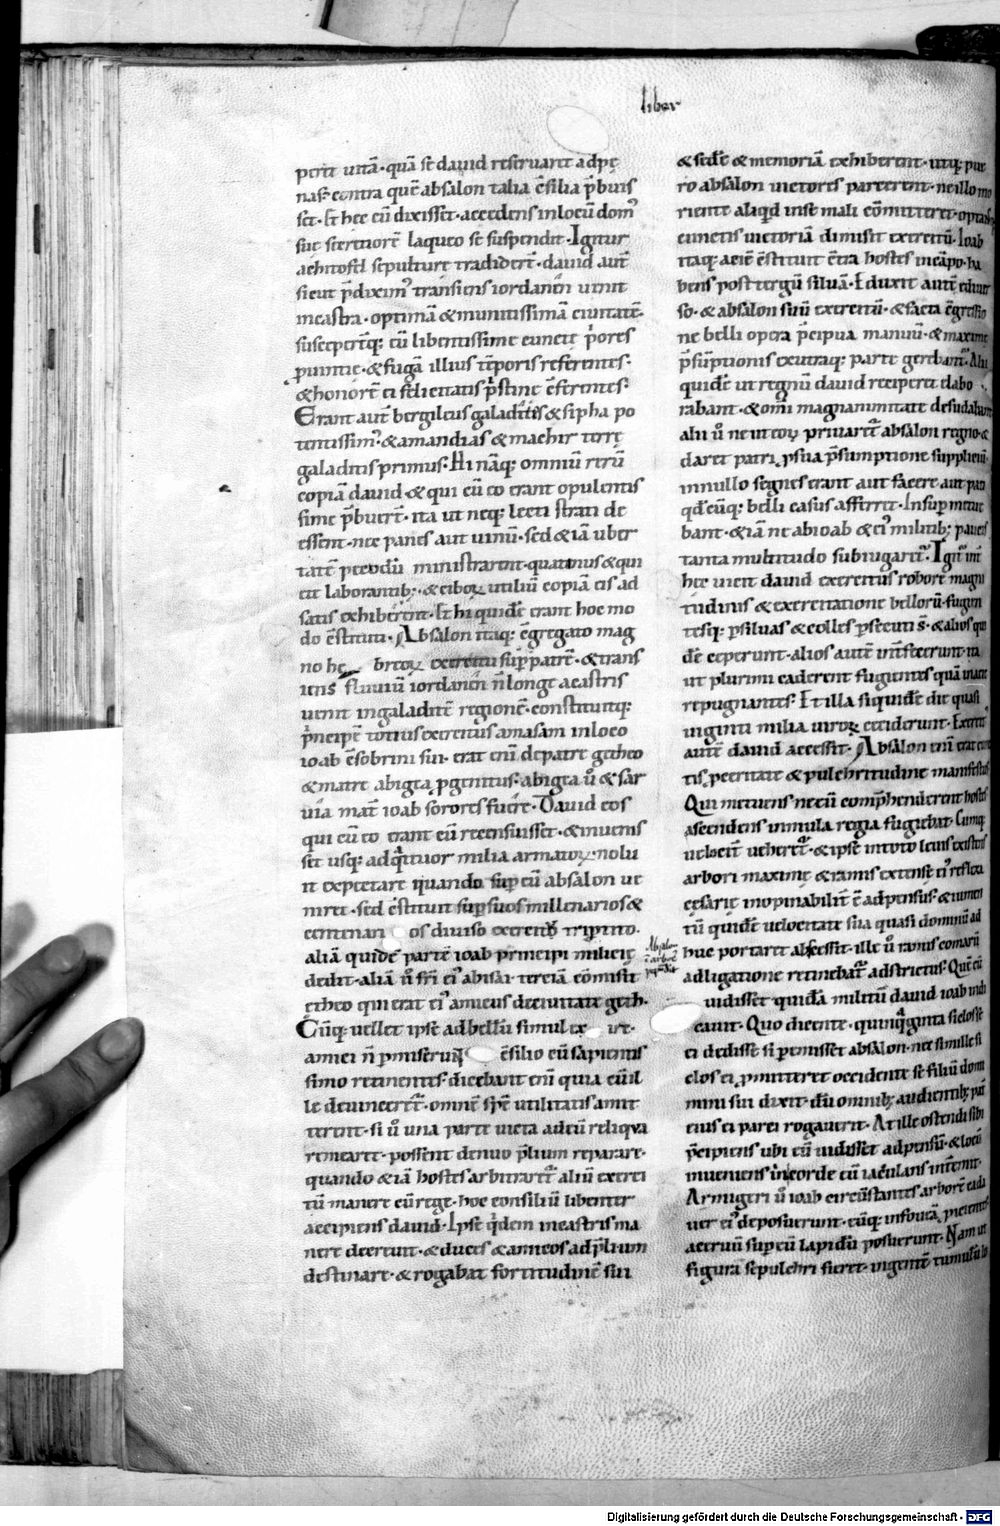 liber
perit uitā · quā se dauid reseruaret ad pę
nas · contra quē absalon talia c̄silia p̄buis
set · Et hec cū dixisset · accedens in locū dom᷒
suę sternorē laqueo se suspendit · Igitur
achitofel sepulturę tradiderт̄ · dauid aut̄
sicut p̄dixim᷒ transiens iordanēn uenit
in castra · optimā & munitissimā ciuitatē ·
susceperт̄q; eū libentissime cuncte p̄ores
prouintię · & fugā illius tēporis referentes ·
& honorē ei felicitatis p̄stinę c̄ferentes ·
Erant aut̄ bergileus galadites & sipha po
tentissim᷒ · & amandias & machir terrę
galaditis primus · Hi nāq; omniū rerū
copiā dauid · & qui cū eo erant opulentis
sime p̄buer̄t · ita ut neq; lecti strati de
essent · nec panes aut uinū · sed & iā uber
tatē pecudū ministrarent · quatinus & qui
et laborantib; · & ciboꝝ utiliū copiā eis ad
satis exhiberent · Et hi quidē erant hoc mo
do c̄stituti · Absalon itaq; c̄gregato mag
no hę breoꝝ exercitu sup̄ patrē · & trans
iens fluuiū iordanēn n̄ longe a castris
uenit in galaditē regionē · constituitq;
p̄ncipē totius exercitus amasam in loco
ioab c̄sobrini sui · erat eni de patre getheo
& matre abigea p̄genitus · abigea ū & sar
uia mat̄ ioab sorores fuer̄e · Dauid eos
qui cū eo erant cū recensuisset · & inuenis
set usq; ad quattuor milia armatoꝝ · nolu
it expectare quando sup̄ eū absalon ue
niret · sed c̄stituit sup̄ suos millenarios &
centenari os diuiso exercitu tripirito ·
aliā quidē partē ioab principi milicię
dedit · aliā ū fri ei᷒ abisai · terciā cōmisit
etheo qui erat ei᷒ amicus de ciuitate geth ·
Cūq; uellet ipse ad bellū simul ex ire ·
amici n̄ p̄miserunt c̄silio eū sapientis
simo retinentes · dicebant eni quia cū il
le deuinceret̄ · omnē spē utilitatis amit
terent · si ū una parte uicta ad eū reliqua
remearet · possent denuo p̄lium reparare ·
quando & iā hostes arbitraret̄ aliū exerci
tū manere cū rege · hoc consiliū libenter
accipiens dauid · Ipse q̄dem in castris ma
nere decreuit · & duces & amicos ad p̄lium
destinare · & rogabat fortitudinē sui
Absalon
ī arbore
& sedē & memoriā exhiberent · utiq; pue
ro absalon uictores parcerent · ne illo mo
riente aliqd inse mali cōmitteret · optans
cunctis uictoriā dimisit exercitū · Ioab
itaq; aciē c̄stituit c̄tra hostes in cāpo · ha
bens post tergū siluā · Eduxit autē
so · & absalon suū exercitū · & facta c̄gressio
ne belli opera p̄cipua manuū · & maxime
p̄sūptionis ex utraq; parte gerebant · Alii
quidē ut regnū dauid reciperet labo
rabant · & omī magnanimitate desudabant
alii ū ne ut eoꝝ priuaret̄ absalon regno · &
daret patri p̄ sua p̄sumptione suppliciū ·
in nullo segnes erant aut facere aut pati
qd cūq; belli casus afferret · Insup̄ metue
bant · & iā ne ab ioab & ei᷒ militib; paucis
tanta multitudo subiugaret̄ · Igit̄ ini
hęc uicit dauid exercitus robore magni
tudinis & exercitatione bellorū · fugien
tesq; p̄ siluas & colles p̄secuti s̄ · & alios qui
dē ceperunt · alios autē int̄fecerunt · ita
ut plurimi caderent fugientes quā uiuere
repugnantes · Et illa siquidē die quasi
uiginti milia uiroꝝ ceciderunt · Exercit᷒
autē dauid accessit · Absalon eni erat
tis peeritate & pulchritudine manifestus
Qui metuens ne eū comp̄henderent hostes
ascendens in mula regia fugiebat · Cumq;
uelociт̄ ueheret̄ · & ipse in toto leuis existens
arbori maxime & ramis extensę ei᷒ reflexa
cesarię inopinabilit̄ ē adpensus · & iumen
tū quidē uelocitate sua quasi dominū ad
huc portaret abscessit · ille ū ramis comarū
adligatione retinebat̄ adstrictus · Quē cū
uidisset quidā militū dauid ioab indi
cauit · Quo dicente · quinq̄ginta siclos se
ei dedisse si p̄emisset absalon · nec si mille si
clos ei p̄mitteret occidente se filiū domi
mini sui dixit · dū omnib; audientib; pat̄
eius ei parci rogauerit · At ille ostendi sibi
p̄cipiens ubi eū uidisset adpensū · & locū
inueniens in corde eū iaculans int̄emit ·
Armigeri ū ioab circūstantes arborē cada
uer ei᷒ deposuerunt · eūq; in fouea p̄icientes
aceruū sup̄ eū lapidū posuerunt · Nam ut
figura sepulchri fieret · ingentē tumulū